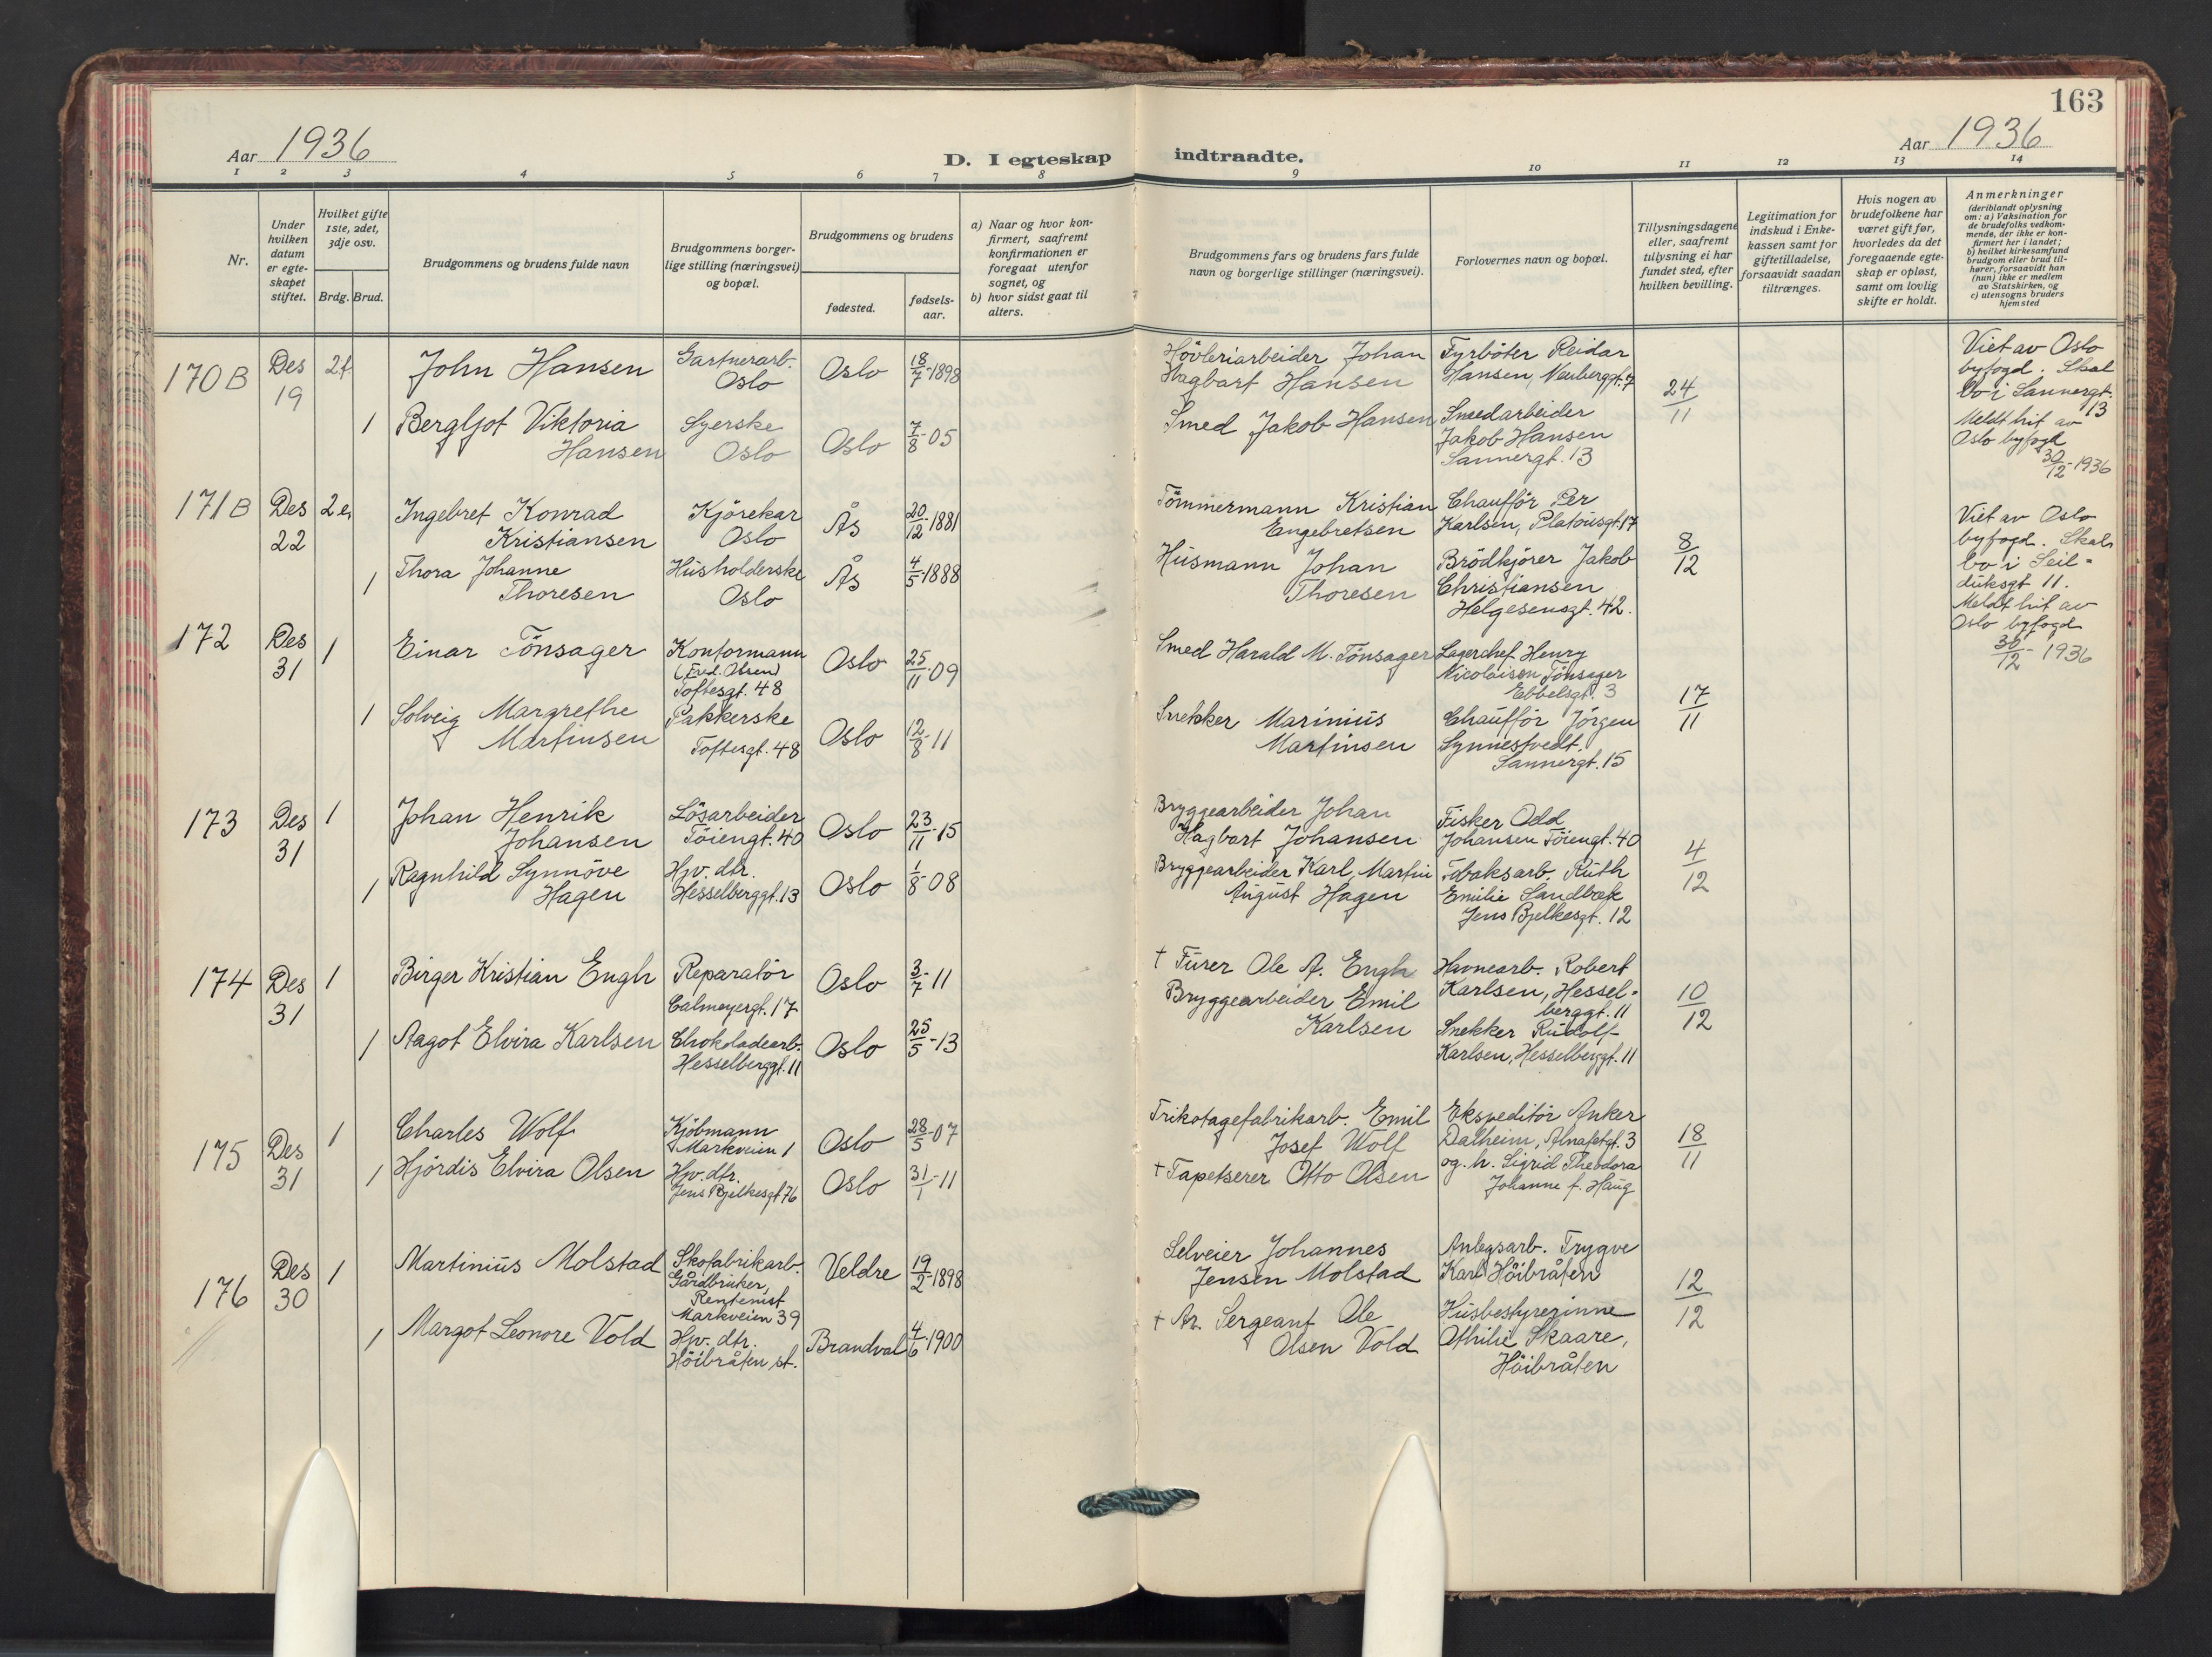 163
Aar 1936
D. I egteskap
indtraadte.
Aar 1936
1 2 3 4 5 6 7 8 9 10 11 12 13 14
Nr.
Under
hvilken
datum
er egte-
skapet
stiftet.
Hvilket gifte
1ste, 2det,
3dje osv.
Brdg. Brud.
Brudgommens og brudens fulde navn
Brudgommens borger-
lige stilling (næringsvei)
og bopæl.
Brudgommens og brudens
fødested.
fødsels-
aar.
a) Naar og hvor kon-
firmert, saafremt
konfirmationen er
foregaat utenfor
sognet, og
b) hvor sidst gaat til
alters.
Brudgommens fars og brudens fars fulde
navn og borgerlige stillinger (næringsvei).
Forlovernes navn og bopæl.
Tillysningsdagene
eller, saafremt
tillysning ei har
fundet sted, efter
hvilken bevilling.
Legitimation for
indskud i Enke-
kassen samt for
giftetilladelse,
forsaavidt saadan
tiltrænges.
Hvis nogen av
brudefolkene har
været gift før,
hvorledes da det
foregaaende egte-
skap er opløst,
samt om lovlig
skifte er holdt.
Anmerkninger
(deriblandt oplysning
om: a) Vaksination for
de brudefolks vedkom-
mende, der ikke er kon-
firmert her i landet;
b) hvilket kirkesamfund
brudgom eller brud til-
hører, forsaavidt han
(hun) ikke er medlem
av Statskirken, og
c) utensogns bruders
hjemsted
170 B
Des
19
2f.
John Hansen
Gartnerarb.
Oslo
Oslo
18/7-1898
Hövleriarbeider Johan
Hagbart Hansen
Fyrböter Reidar
Hansen, Neubergt. 7
24/11
1
Bergljot Viktoria
Hansen
Syerske
Oslo
Oslo
7/8-05
Smed Jakob Hansen
Smedarbeider
Jakob Hansen
Sannergt. 13
Viet av Oslo
byfogd. Skal
bo i Sannergt.
13
Meldt hit av
Oslo byfogd
30/12-1936
171 B
Des
22
2 e.
Ingebret Konrad
Kristiansen
Kjörekar
Oslo
Ås
20/12-1881
Tömmermann Kristian
Engebretsen
Chaufför Per
Karlsen, Platousgt. 17
8/12
1
Thora Johanne
Thoresen
Husholderske
Oslo
Ås
4/5-1888
Husmann Johan
Thoresen
Brödkjörer Jakob
Christiansen
Helgesensgt. 42.
Viet av Oslo
byfogd. Skal
bo i Seil-
duksgt 11.
Meldt hit av
Oslo byfogd
30/12-1936
172
Des
31
1
Einar Tönsager
Kontormann
(Fred. Olsen)
Toftesgt. 48
Oslo
25/11-09
Smed Harald M. Tönsager
Lagerchef Henry
Nicolaisen Tönsager
Ebbelsgt. 3
17/11
1
Solveig Margrethe
Martinsen
Pakkerske
Toftesgt. 48
Oslo
12/8-11
Snekker Marinius
Martinsen
Chaufför Jörgen
Synnestvedt.
Sannergt. 15
173
Des
31
1
Johan Henrik
Johansen
Lösarbeider
Töiengt. 40
Oslo
23/11-15
Bryggearbeider Johan
Hagbart Johansen
Fisker Odd
Johansen Töiengt. 40
4/12
1
Ragnhild Synnöve
Hagen
Hjv. dtr.
Hesselberggt. 13
Oslo
1/8-08
Bryggearbeider Karl Martin
August Hagen
Tobaksarb. Ruth
Emilie Sandbæk
Jens Bjelkesgt. 12
174
Des
31
1
Birger Kristian Engh
Reparatör
Calmeyergt. 17
Oslo
3/7-11
† Furer Ole A. Engh
Havnearb. Robert
Karlsen, Hessel-
berggt. 11
10/12
1
Aagot Elvira Karlsen
Chokoladearb.
Hesselberggt. 11
Oslo
25/5-13
Bryggearbeider Emil
Karlsen
Snekker Rudolf
Karlsen, Hesselberggt. 11
175
Des
31
1
Charles Wolf
Kjöbmann
Markveien 1
Oslo
28/5-07
Trikotagefabrikarb. Emil
Josef Wolf
Ekspeditör Anker
Dalheim, Alnafetgt. 3
18/11
1
Hjördis Elvira Olsen
Hjv. dtr.
Jens Bjelkesgt 76
Oslo
31/1-11
† Tapetserer Otto Olsen
og h. Sigrid Theodora
Johanne f. Haug
176
Des
30
1
Martinius Molstad
Skofabrikarb.
Gårdbruker,
Rentenist
Markveien 39
Veldre
19/2-1898
Selveier Johannes
Jensen Molstad
Anlegsarb. Trygve
Karl Höibråten
12/12
1
Margot Leonore Vold
Hjv. dtr.
Höibråten st.
Brandval
4/6-1900
† Ar. Sergeant Ole
Olsen Vold
Husbestyrerinne
Othilie Skaare,
Höibråten